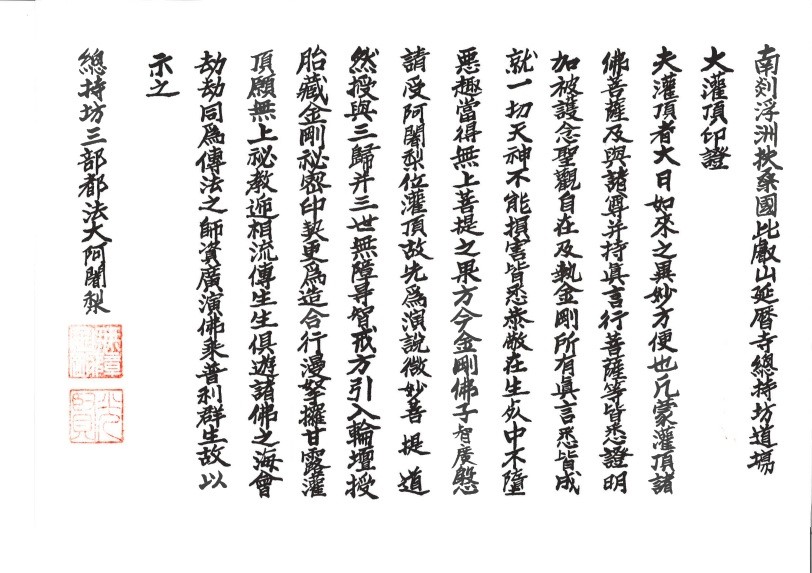 南剡浮洲扶桑國比叡山延暦寺總持坊道場
大灌頂印證
夫灌頂者大日如來之異妙方便也凡蒙灌頂諸
佛菩薩及與諸尊并持眞言行菩薩等皆悉證明
加被護念聖觀自在及執金剛所有眞言悉皆成
就一切天神不能損害皆悉崇敬在生死中不墮
惡趣當得無上菩提之果方今金剛佛子智廣慇
請受阿闍梨位灌頂故先爲演説微妙菩提道
然授與三歸并三世無障㝵智戒方引入輪壇授
胎藏金剛祕密印契更爲造合行漫拏攞甘露灌
頂願無上祕教迊相流傳生生俱遊諸佛之海會
劫劫同爲傳法之師資廣演佛乘普利群生故以
示之
總持坊三部都法大阿闍梨